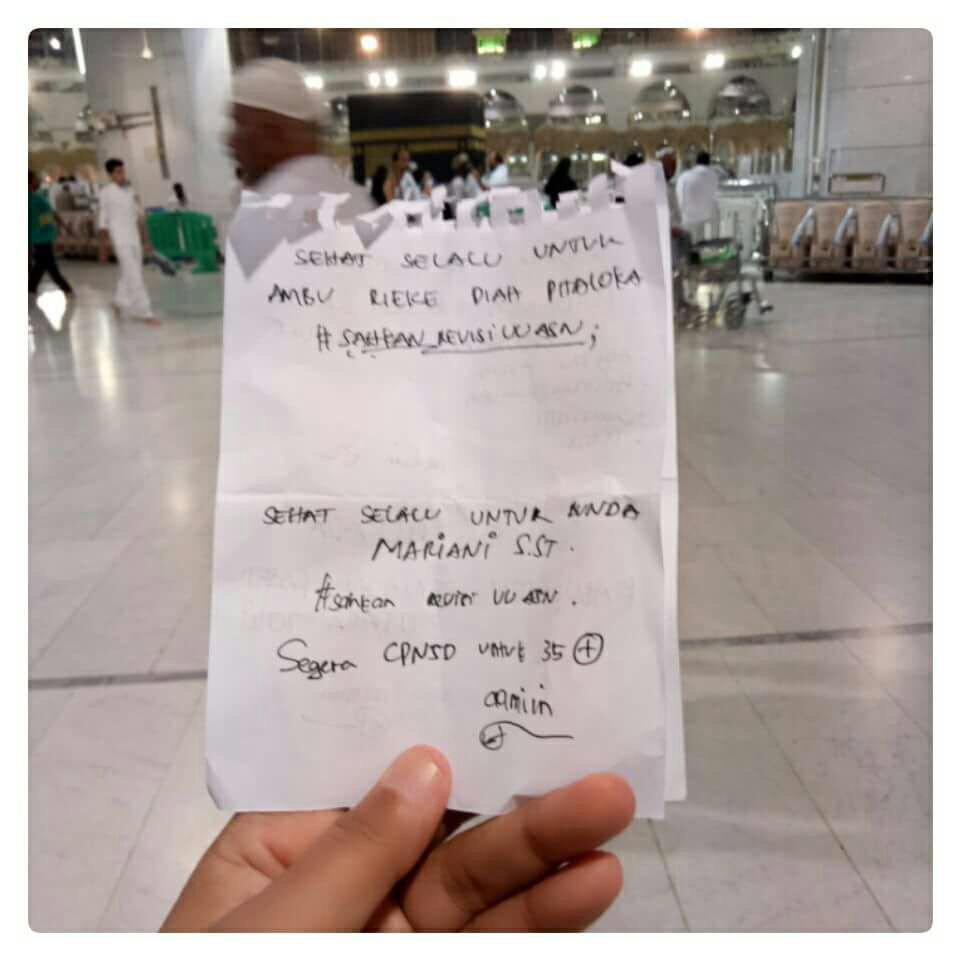 SEHAT SELALU UNTUK
AMBU RIEKE DIAH PITALOKA
#SAHKAN_REVISI UU ASN;
SEHAT SELALU UNTUK BUNDA
MARIANI S.ST.
#sahkan REVISI UU ASN.
Segera CPNSD UNTUK 35 +
aamiin